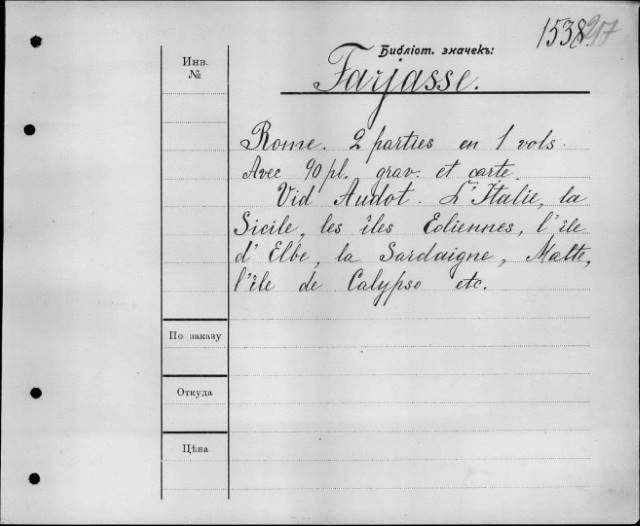 1538
Библіот. значекъ:
Инв.
№
Farjasse.
Rome. 2 parties en 1 vols.
Avec 90 pl. grav. et carte.
Vid Audot. L'Italie, la
Sicile, les îles Eoliennes, l'île
d'Elbe, la Sardaigne, Malte,
l'île de Calypso etc.
По заказу
Откуда
Цѣна